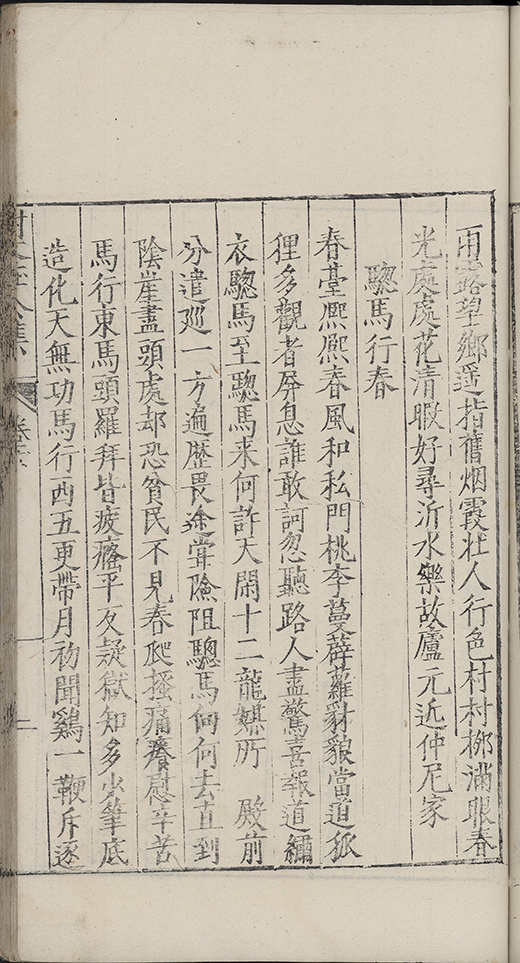 雨露望鄉遥指舊烟霞壯人行色村村栁滿眼春
光處處花清暇好尋沂水樂故廬元近仲尼家
驄馬行春
春臺熈熈春風和私門桃李蔓薜蘿豺貌當道狐
狸多觀者屏息誰敢訶忽聽路人盡驚喜報道繡
衣驄馬至驄馬来何許天閑十二龍媒所 殿前
分遣廵一方遍歷畏途嘗險阻驄馬何何去直到
陰崖盡頭處却恐貧民不見春爬搔痛癢慰辛苦
馬行東馬頭羅拜皆疲癃平反疑獄知多少筆底
造化天無功馬行西五更帶月初聞鷄一鞭斥逐